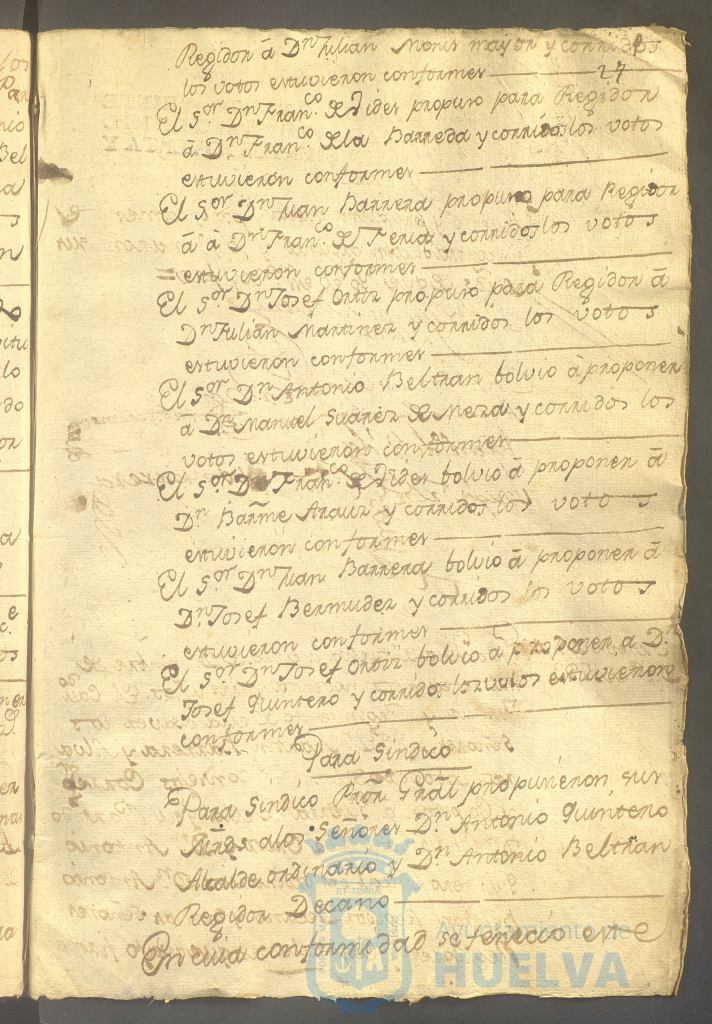 Regidor â Dn Julian Monis mayor y corridos
los votos estuvieron conformes 24
El Sor Dn Franco de Jides propuso para Regidor
â Dn Franco de la Barreda y corridos los votos
estuvieron conformes
El Sor Dn Juan Barrera propuso para Regidor
â â Dn Franco de Feria y corridos los votos
estuvieron conformes
El Sor Dn Josef Ortiz propuso para Regidor â
Dn Julian Martinez y corridos los votos
estuvieron conformes
El Sor Dn Antonio Beltran bolvio â proponer
â Dn Manuel Suarez de Meza y corridos los
votos estuvieron conformes
El Sor Dn Franco de Jides bolvio â proponer â
Dn Barme Arauz y corridos los votos
estuvieron conformes
El Sor Dn Juan Barrera bolvio â proponer â
Dn Josef Bermudez y corridos los votos
estuvieron conformes
El Sor Dn Josef Ortiz bolvio â proponer a Dn
Josef Quintero y corridos los votos estuvieron
conformes
Para Sindico
Para Sindico Pror Gral propusieron, sus
Mrds a los Señores Dn Antonio Quintero
Alcalde ordinario y Dn Antonio Beltran
Regidor Decano
En cuia conformidad se fenecio este
Ayuntamiento de
HUELVA